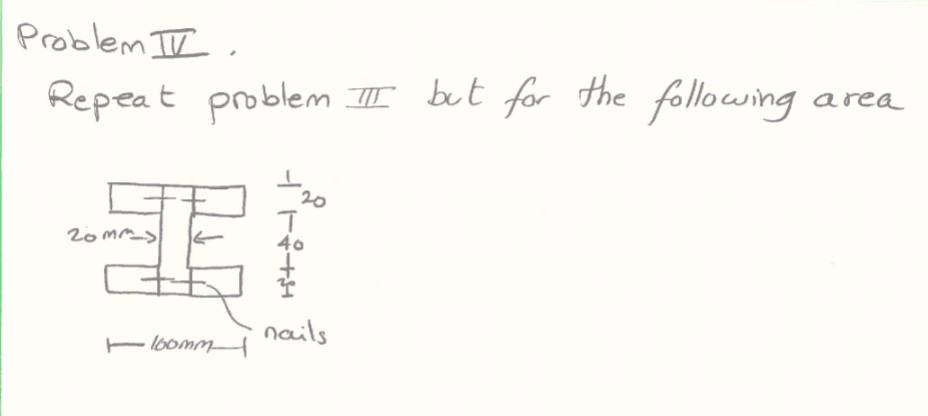 Problem IV.
Repeat problem III but for the following area
20
20mm
40
nails
100mm